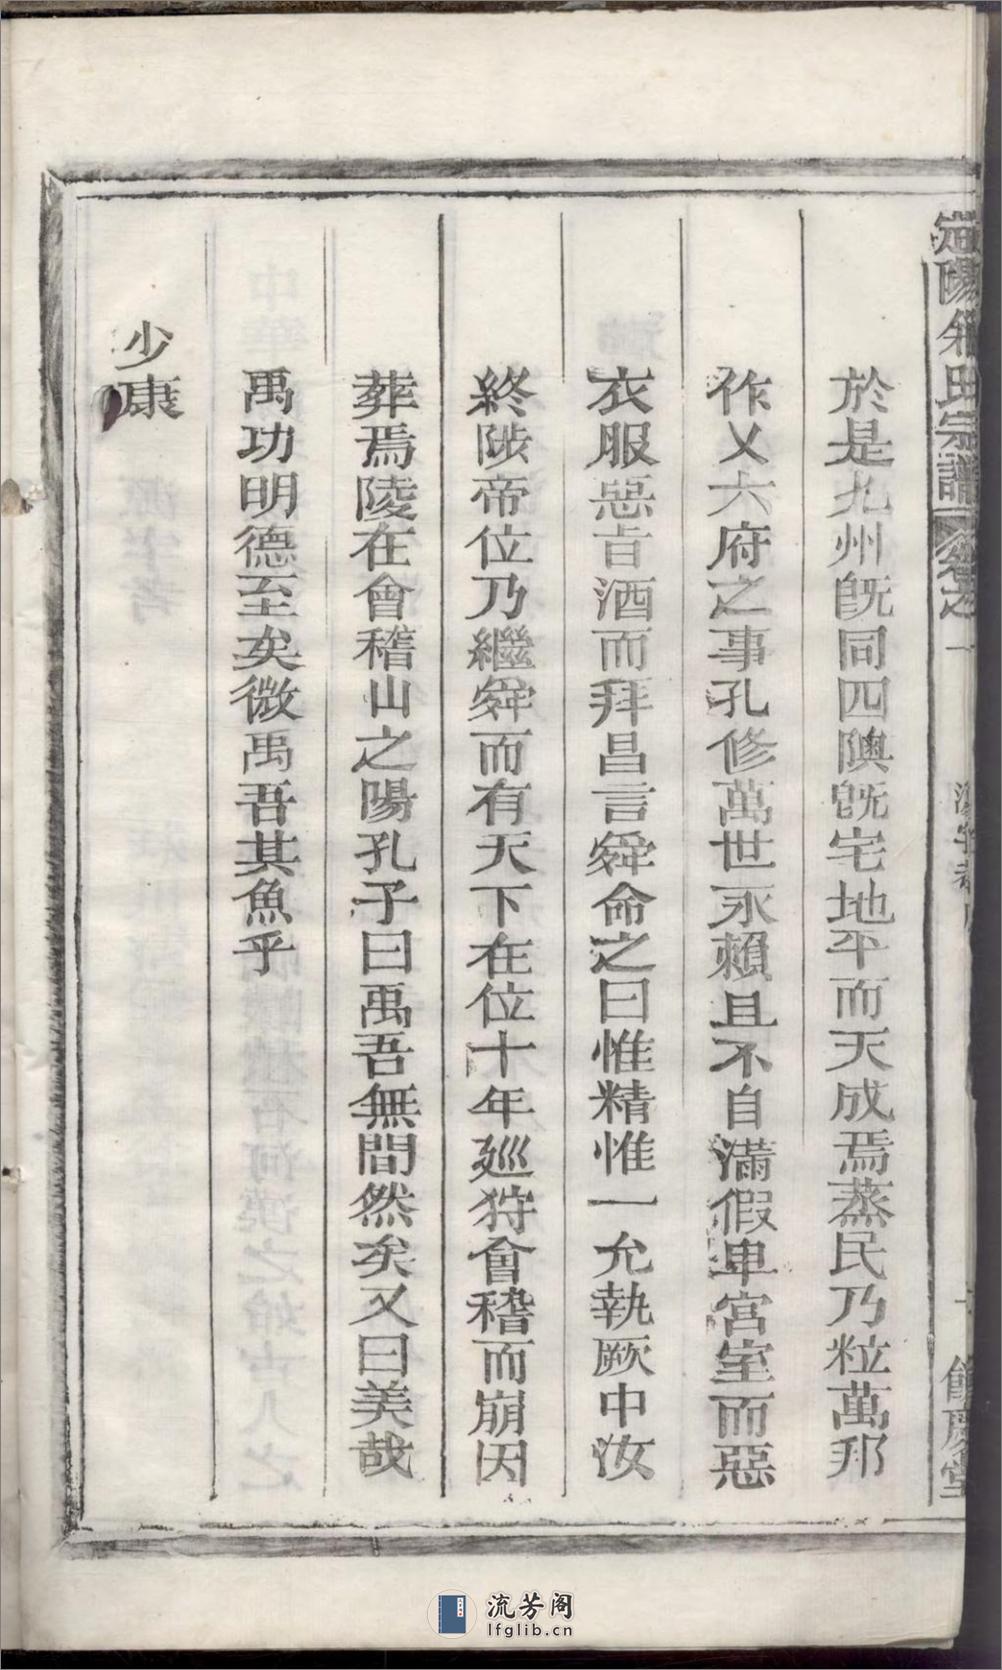 於是九州既同四隩既宅地平而天成焉蒸民乃粒萬邦
作乂六府之事孔修萬世永賴且不自滿假卑宮室而惡
衣服惡旨酒而拜昌言舜命之曰惟精惟一允執厥中汝
終陟帝位乃繼舜而有天下在位十年廵狩會稽而崩因
葬焉陵在會稽山之陽孔子曰禹吾無間然矣又曰美哉
禹功明德至矣微禹吾其魚乎
少康
氏宗譜
卷之一
慶堂
流芳阁
lfglib.cn